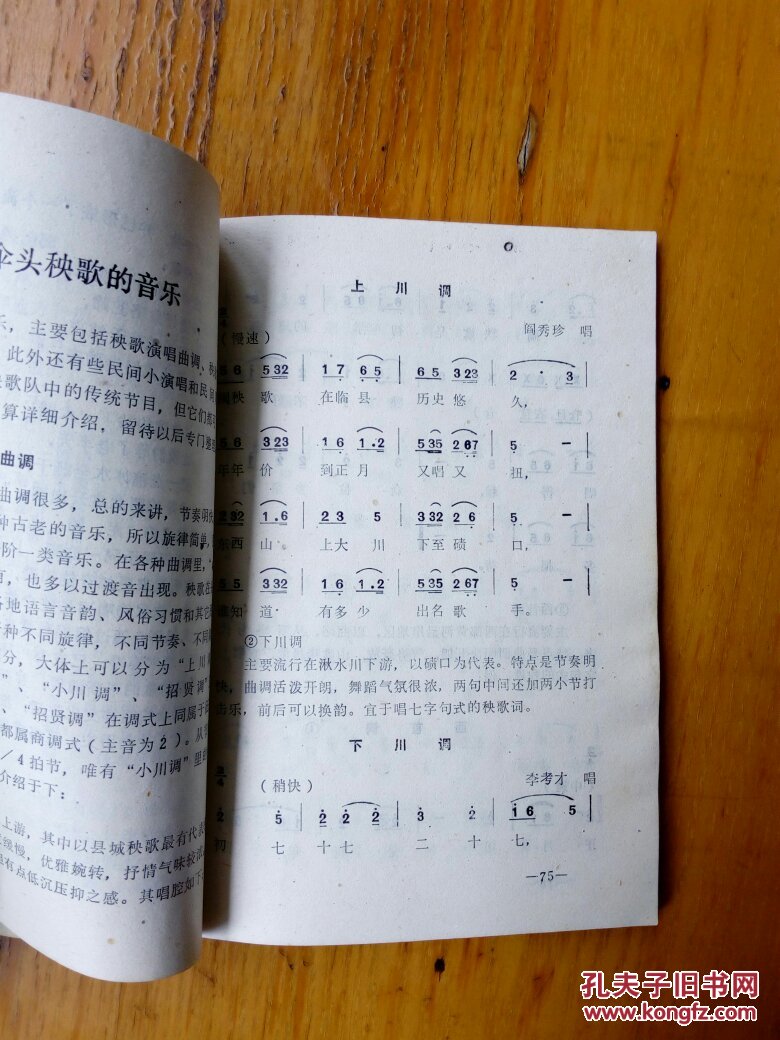 伞头秧歌的音乐
乐，主要包括秧歌演唱曲调、
此外还有些民间小演唱和民
歌队中的传统节目，但它们都
算详细介绍，留待以后专门
曲调
曲调很多，总的来讲，节奏明
种古老的音乐，所以旋律简单，
阶一类音乐。在各种曲调里，
，也多以过渡音出现。秧歌在
各地语言音韵、风俗习惯和其它
种不同旋律，不同节奏、不同
分，大体上可以分为“上川
”、“小川调”、“招贤调”
、“招贤调”在调式上同属于
都属商调式（主音为2）。从
／4拍节，唯有“小川调”里
介绍于下：
上游，其中以县城秧歌最有代表
缓慢，优雅婉转，抒情气味较
有点低沉压抑之感。其唱腔如下
上川调
（慢速） 阎秀珍 唱
6 6 5 3 2 | 1 7 6 5 | 6 5 3 2 3 | 2 · 3 |
秧 歌 在 临 县 历 史 悠 久，
5 6 3 2 3 | 1 6 1·2 | 5 3 5 2 6 7 | 5 － |
年 年 价 到 正 月 又 唱 又 扭，
2 3 2 1·6 | 2 3 5 | 3 3 2 2 6 | 5 － |
东 西 山 上 大 川 下 至 碛 口，
5 5 3 3 2 | 1 6 1·2 | 5 3 5 2 6 7 | 5 － |
谁 知 道 有 多 少 出 名 歌 手。
②下川调
主要流行在湫水川下游，以碛口为代表。特点是节奏明
快，曲调活泼开朗，舞蹈气氛很浓，两句中间还加两小节打
击乐，前后可以换韵。宜于唱七字句式的秧歌词。
下川调
（稍快） 李考才 唱
2 5 | 2 2 2 2 | 3 2 | 1 6 5 |
初 七 十 七 二 十 七，
—75—
孔夫子旧书网
www.kongfz.com